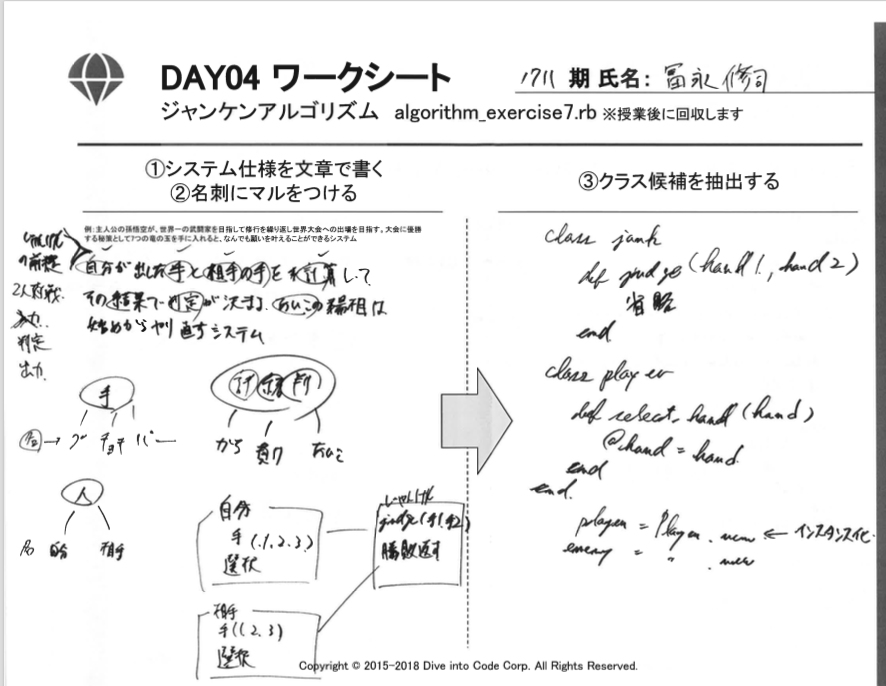 DAY04 ワークシート
1711 期 氏名: 冨永 修司
ジャンケンアルゴリズム algorithm_exercise7.rb ※授業後に回収します
①システム仕様を文章で書く
②名刺にマルをつける
例: 主人公の孫悟空が、世界一の武闘家を目指して修行を繰り返し世界大会への出場を目指す。大会に優勝
する秘策として7つの竜の玉を手に入れると、なんでも願いを叶えることができるシステム
じゃんけん
の前提
2人対戦
入力
判定
出力
自分が出した手と相手の手を計算して
その結果で判定が決まる。あいこの場合は
始めからやり直すシステム
手
→ グー チョキ パー
かち 負け あいこ
人
名 自分 相手
自分
手 (1.2.3)
選択
じゃんけん
judge(手1,手2)
勝敗返す
相手
手(1.2.3)
選択
③クラス候補を抽出する
class jank
def judge(hand1, hand2)
省略
end
class player
def select_hand(hand)
@hand = hand
end
end
player = Player.new ← インスタンス化
enemy = 〃 .new
Copyright © 2015-2018 Dive into Code Corp. All Rights Reserved.